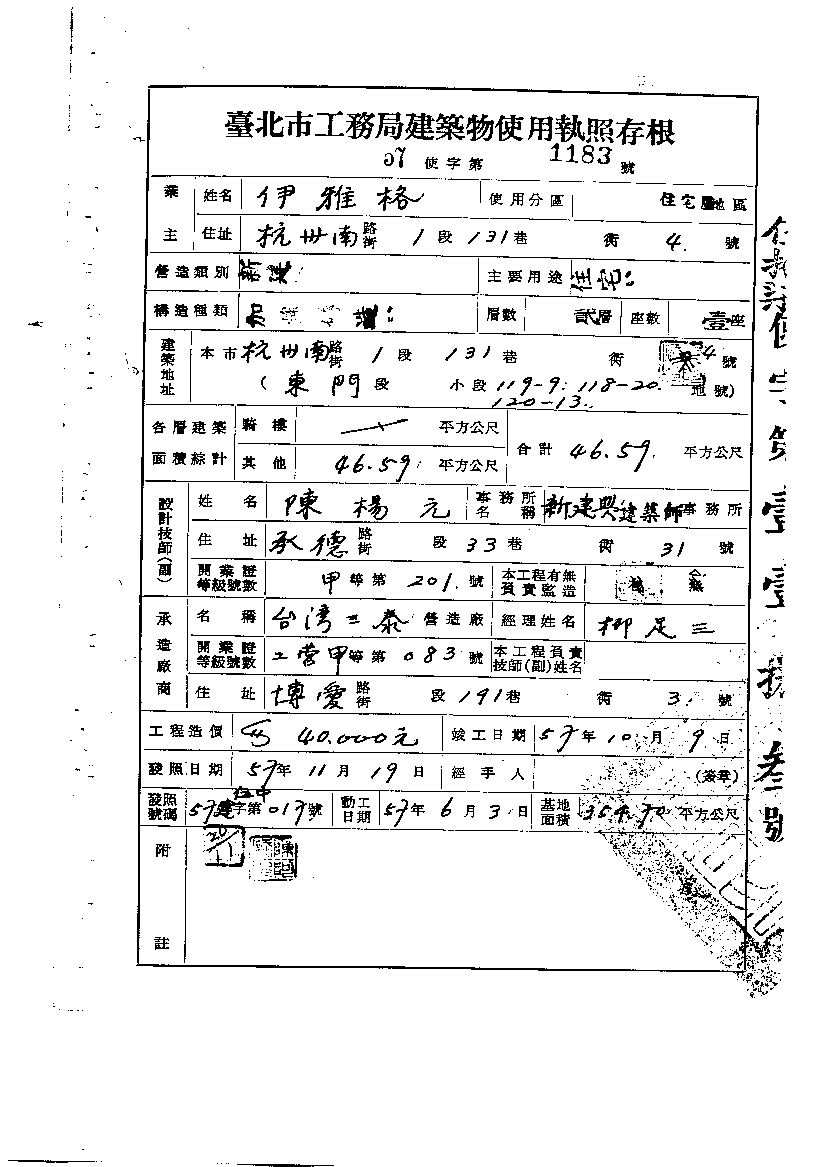 臺北市工務局建築物使用執照存根
57 使字第 1183 號
業主 姓名 伊雅格 使用分區 住宅 地區
住址 杭州南路街 1 段 131 巷 衖 4. 號
營造類別 新建 主要用途 住宅
構造種類 加強 造 層數 貳層 座數 壹座
建築地址 本市 杭州南路街 1 段 131 巷 衖 4 號
(東門段 小段 119-9. 118-20. 地號)
120-13.
各層建築面積綜計 騎樓 平方公尺 合計 46.59. 平方公尺
其他 46.59. 平方公尺
設計技師(副) 姓名 陳楊元 事務所名稱 新建興建築師事務所
住址 承德路街 段 33 巷 衖 31 號
開業證等級號數 甲等第 201. 號 本工程有無負責監造 無
承造廠商 名稱 台湾三泰營造廠 經理姓名 柳足三
開業證等級號數 工營甲等第 083 號 本工程負責技師(副)姓名
住址 博愛路街 段 191 巷 衖 3. 號
工程造價 40.000元 竣工日期 57年 10月 9日
發照日期 57年 11月 19日 經手人 (簽章)
發照號碼 57建字第 017號 動工日期 57年 6月 3日 基地面積 354.70 平方公尺
附註
20/11
使字第壹壹捌叁號